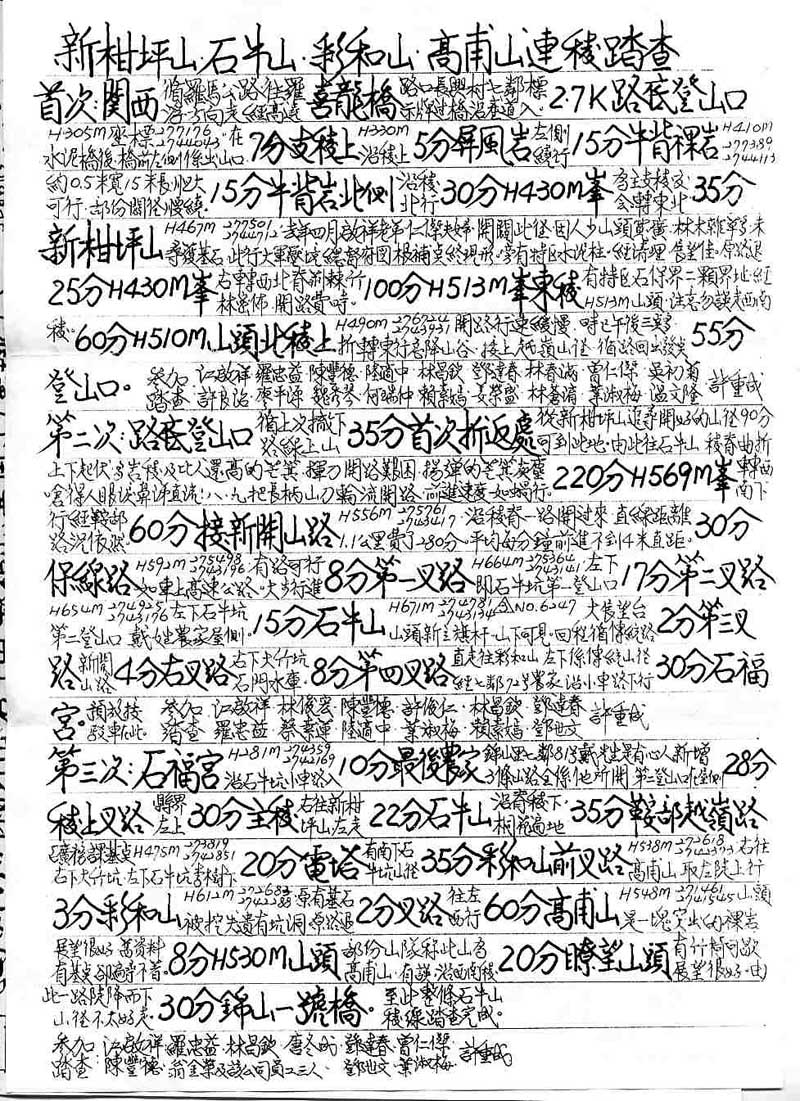 新柑坪山.石牛山.彩和山.高甫山連稜踏查
首次:關西 循羅馬公路往羅浮方向走經高遶 喜龍橋 路口長興村七鄰標示牌過橋沿產道入. 2.7K路底登山口
H305M座標277176 2744043.在水泥橋後.橋前左側係出山口. 7分支稜上 H330M沿稜上 5分屏風岩 左側繞行 15分牛背裸岩 H410M 277389 2744113
約0.5米寬15米長.可行.部份閃徑慢繞. 15分牛背岩北側 沿稜北行 30分H430M峯 為主支稜交會轉東北 35分
新柑坪山 H467M 277501 2744712
25分H430M峯 右轉西北脊荊棘行林密佈.開路費時. 100分H513M峯東稜 有特區石保界二顆界地.經H513M山頭.注意勿誤走西南
稜. 60分H510M.山頭北稜上 H490M 276724 2743931開路行速緩慢.時已午後三點.折轉東行急降山谷.接上越嶺山徑.循路回出發點 55分
登山口。 參加踏查 江啟祥 羅忠益 陳豐德 陸適中 林昌欽 鄧達春 林春滿 曾仁傑 吳初菊 許良治 廖平源 魏秀琴 何瑞仲 賴素嬌 姜榮盛 林春清 葉淑梅 溫文隆 許重成
第二次:路底登山口 循上次撤下路線上山 35分首次折返處 從新柑坪山追尋開好的山徑90分可到此地.由此往石牛山稜脊曲折
上下起伏為岩稜及比人還高的芒箕.揮刀開路艱困.揚彈的芒箕灰塵嗆得人眼淚鼻涕直流!八、九把長柄山刀輪流開路.前進速度如蝸行. 220分H569M峯 轉西南下
行經鞍部路況依然 60分接新開山路 H556M 275761 2743417.沿稜脊一路開過來.直線距離1.1公里費了280分.平均每分鐘前進不到4米直距. 30分
保線路 H592M 275498 2743196有路可行如車上高速公路.大步行進 8分第一叉路 H664M 275364 2743141左下即石牛坑第一登山口 17分第二叉路
H654M 274925 2743176左下石牛坑第二登山口.戴姓農家屋側. 15分石牛山 H671M 274781 2743134 NO.6247 大展望台山頭新立旗杆.山下可見.回程循傳統路 2分第三叉
路 新開山路 4分右叉路 右下大竹坑石門水庫. 8分第四叉路 直走往彩和山.左下係傳統山徑經七鄰72號農家.沿小車路下行 30分石福
宮。 預放接駁車在此 參加踏查 江啟祥 林俊宏 陳豐德 許俊仁 林昌欽 鄧達春 羅忠益 蔡素蓮 陸適中 葉淑梅 賴素嬌 鄧地文 許重成
第三次:石福宮 H281M 274359 2742169沿石牛坑小車路入 10分最後農家 錦山里七鄰81號戴先生是有心人新增3條山路全係他所開.第三登山口在屋側 28分
稜上叉路 縣界左上 30分主稜 右往新柑坪山左走 22分石牛山 沿脊稜下.桐花遍地 35分鞍部越嶺路
H475M 273819 2742851右下大竹坑.左下石牛坑香樹下 20分雷塔 有南下石牛坑山徑 35分彩和山前叉路 H538M 272618 2742373右往高甫山.取左陡上行
3分彩和山 H612M 272683 2742288.原有基石被挖失遺有坑洞.原路退 2分叉路 往左西行 60分高甫山 H548M 271461 2741545山頭是一塊突出的裸岩
展望很好.舊資料有基點卻遍尋不着. 8分H530M山頭 部份山隊稱此山為高甫山.有誤.沿西南稜 20分瞭望山頭 有竹椅可歇展望很好.由
此一路陡降而下山徑不太好走. 30分錦山一號橋。 至此整條石牛山稜線踏查完成。
參加踏查: 江啟祥 羅忠益 林昌欽 唐冬成 鄧達春 曾仁傑 陳豐德 翁金榮及該公司員工三人 鄧地文 葉淑梅 許重成